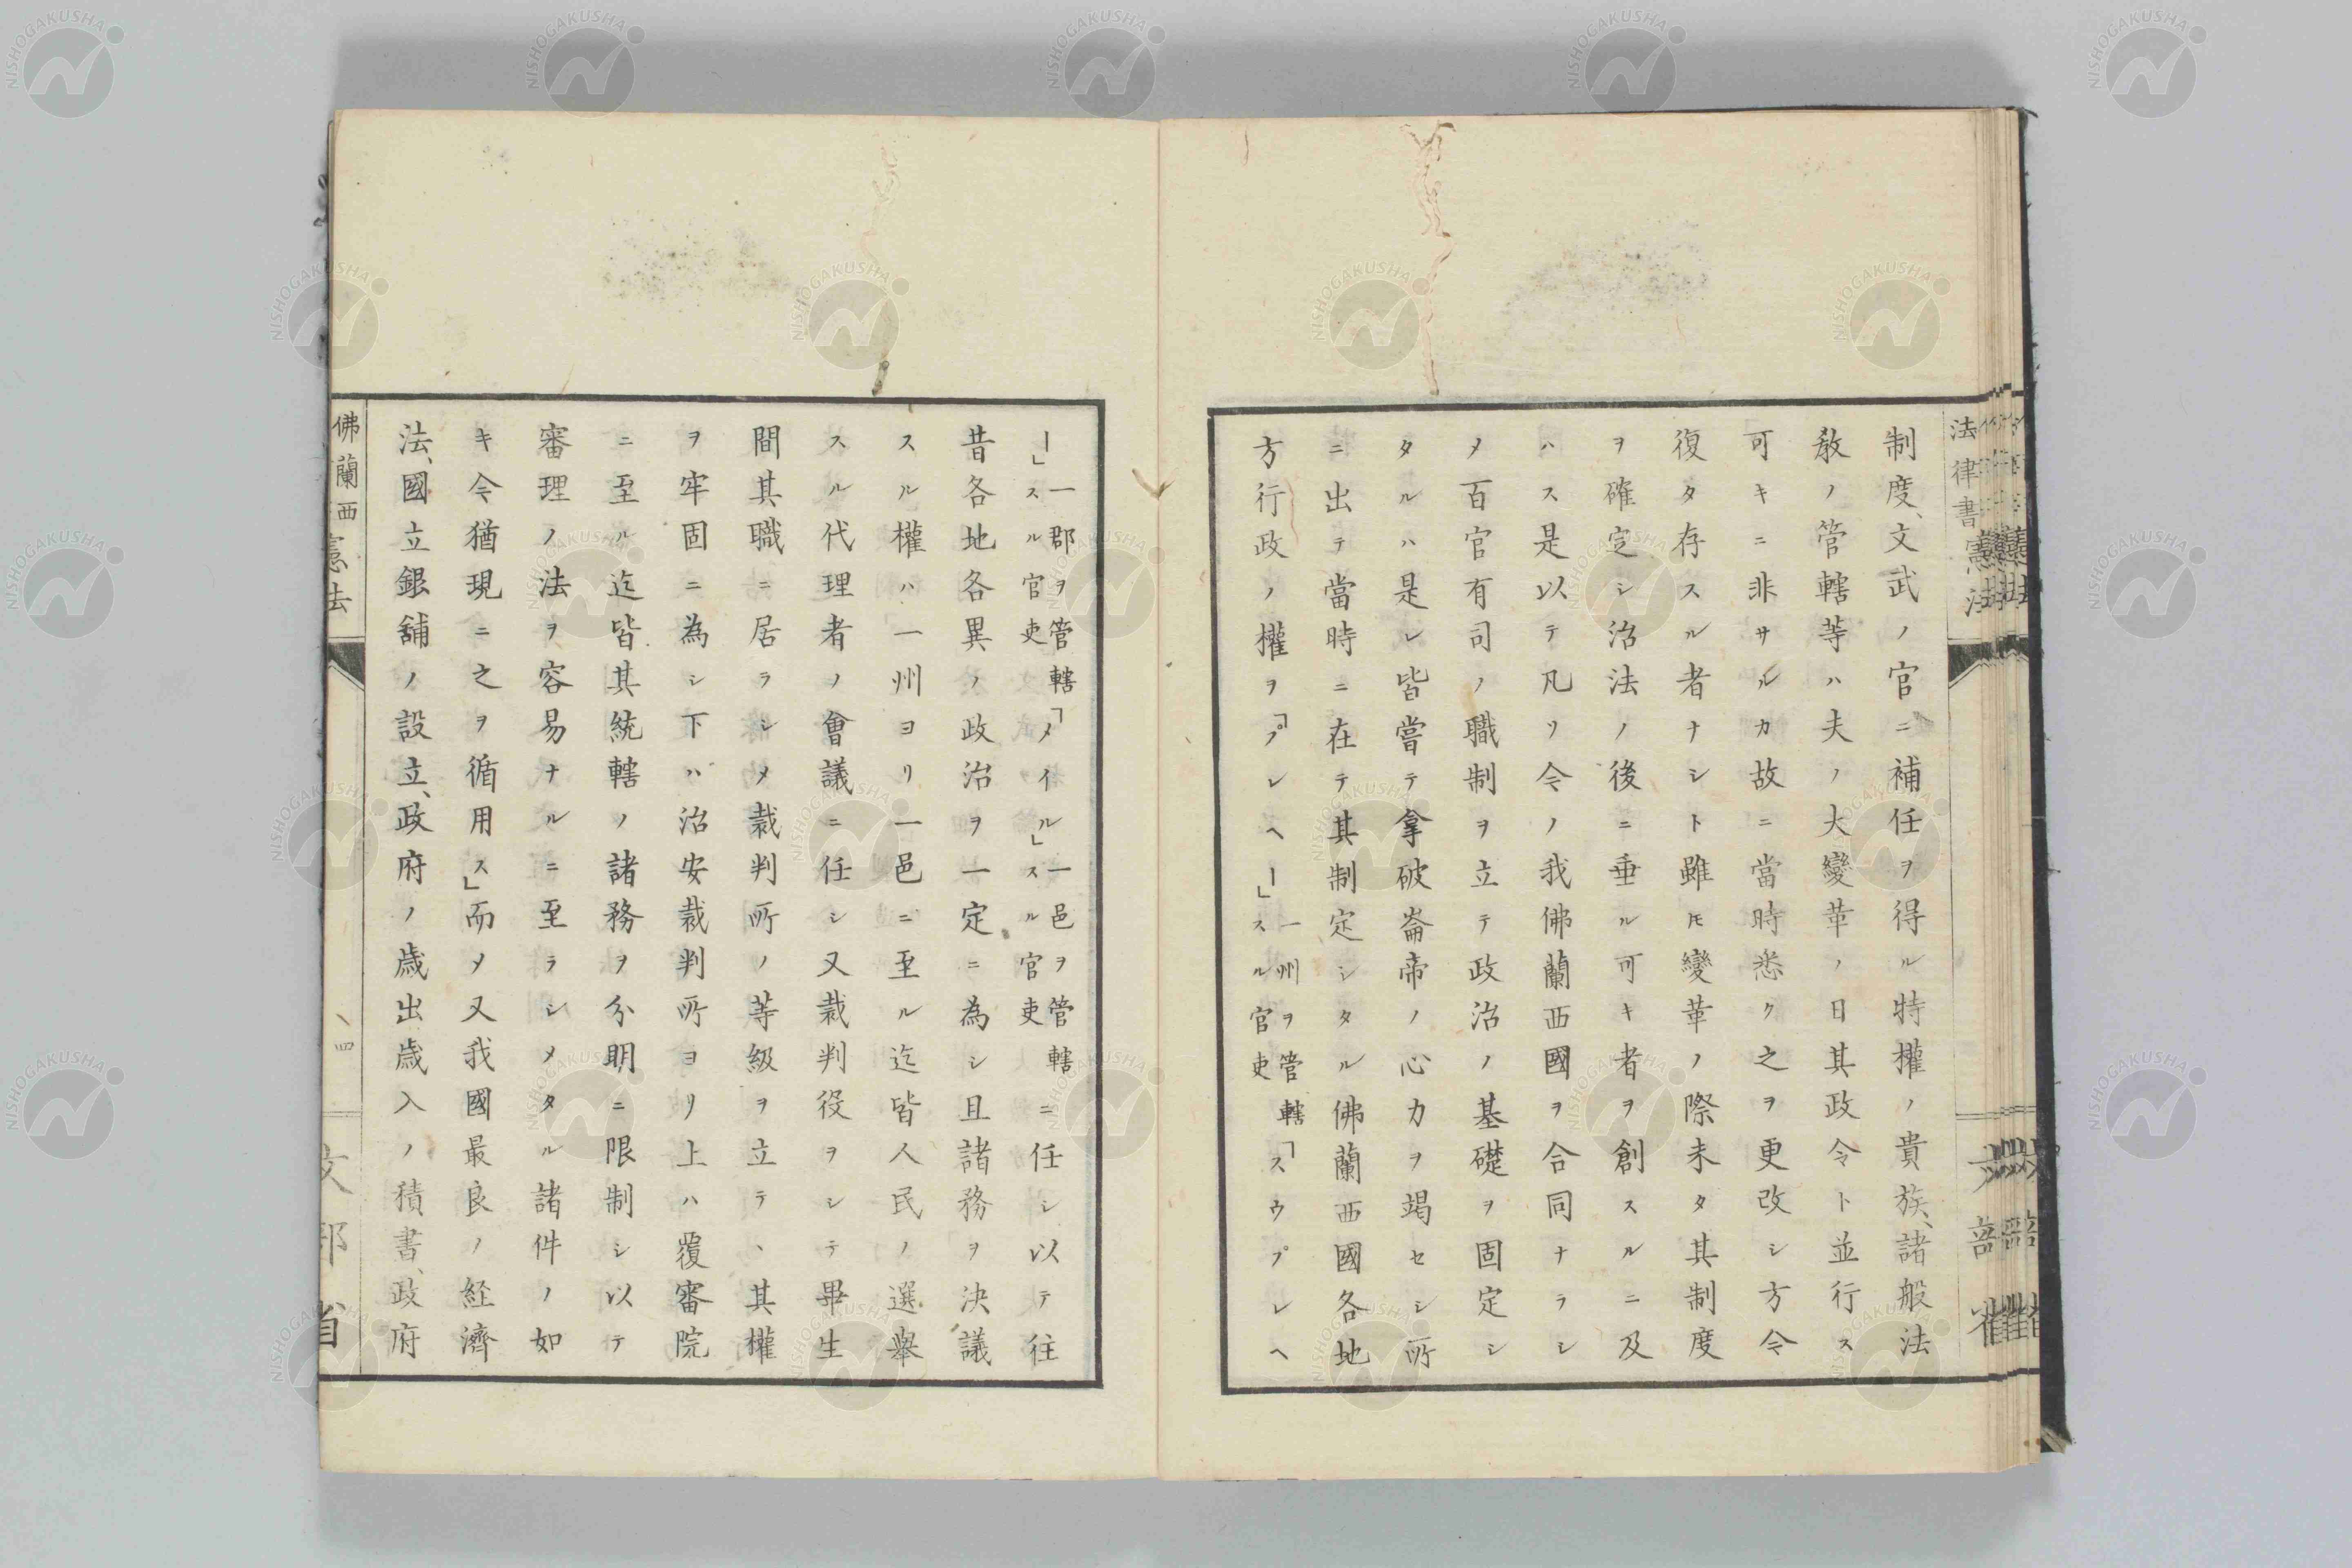 制度、文武ノ官ニ補任ヲ得ル特權ノ貴族、諸般法
教ノ管轄等ハ夫ノ大變革ノ日其政令ト並行ス
可キニ非サルカ故ニ當時悉ク之ヲ更改シ方今
復タ存スル者ナシト雖𪜈變革ノ際未タ其制度
ヲ確定シ治法ノ後ニ垂ル可キ者ヲ創スルニ及
ハス是以テ凡ソ今ノ我佛蘭西國ヲ合同ナラシ
メ百官有司ノ職制ヲ立テ政治ノ基礎ヲ固定シ
タルハ是レ皆嘗テ拿破崙帝ノ心力ヲ竭セシ所
ニ出テ當時ニ在テ其制定シタル佛蘭西國各地
方行政ノ權ヲ「プレヘー」一州ヲ管轄スル官吏「スウプレヘ
ー」一郡ヲ管轄スル官吏「メイル」一邑ヲ管轄スル官吏ニ任シ以テ往
昔各地各異ノ政治ヲ一定ニ為シ且諸務ヲ決議
スル權ハ一州ヨリ一邑ニ至ル迄皆人民ノ選舉
スル代理者ノ會議ニ任シ又裁判役ヲシテ畢生
間其職ニ居ラシメ裁判所ノ等級ヲ立テ、其權
ヲ牢固ニ為シ下ハ治安裁判所ヨリ上ハ覆審院
ニ至ル迄皆其統轄ノ諸務ヲ分明ニ限制シ以テ
審理ノ法ヲ容易ナルニ至ラシメタル諸件ノ如
キ今猶現ニ之ヲ循用ス」而メ又我國最良ノ経濟
法、國立銀舖ノ設立、政府ノ歳出歳入ノ積書、政府
佛蘭西憲法
四
文部省
法律書
憲法
NISHOGAKUSHA